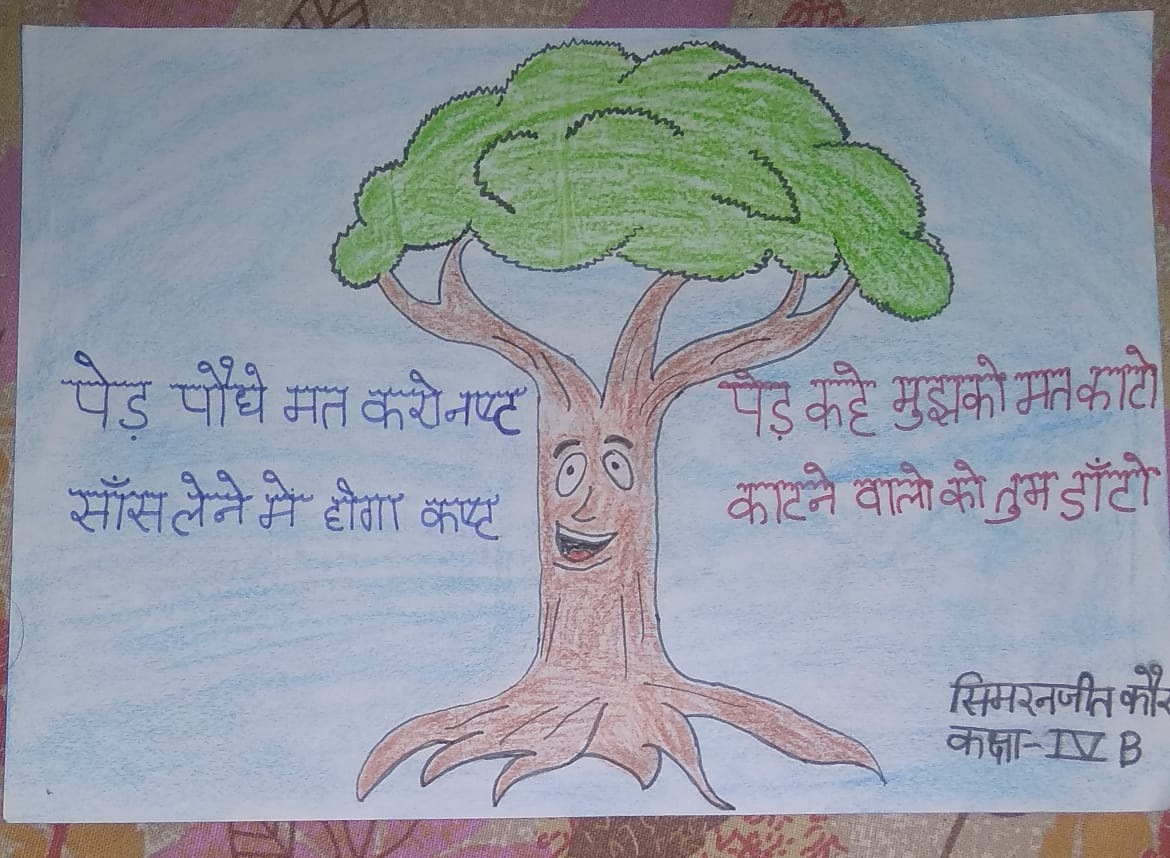 पेड़ पौधे मत करो नष्ट
साँस लेने मे होगा कष्ट
पेड़ कहे मुझको मत काटो
काटने वालो को तुम डाँटो
सिमरनजीत कौर
कक्षा-IV B